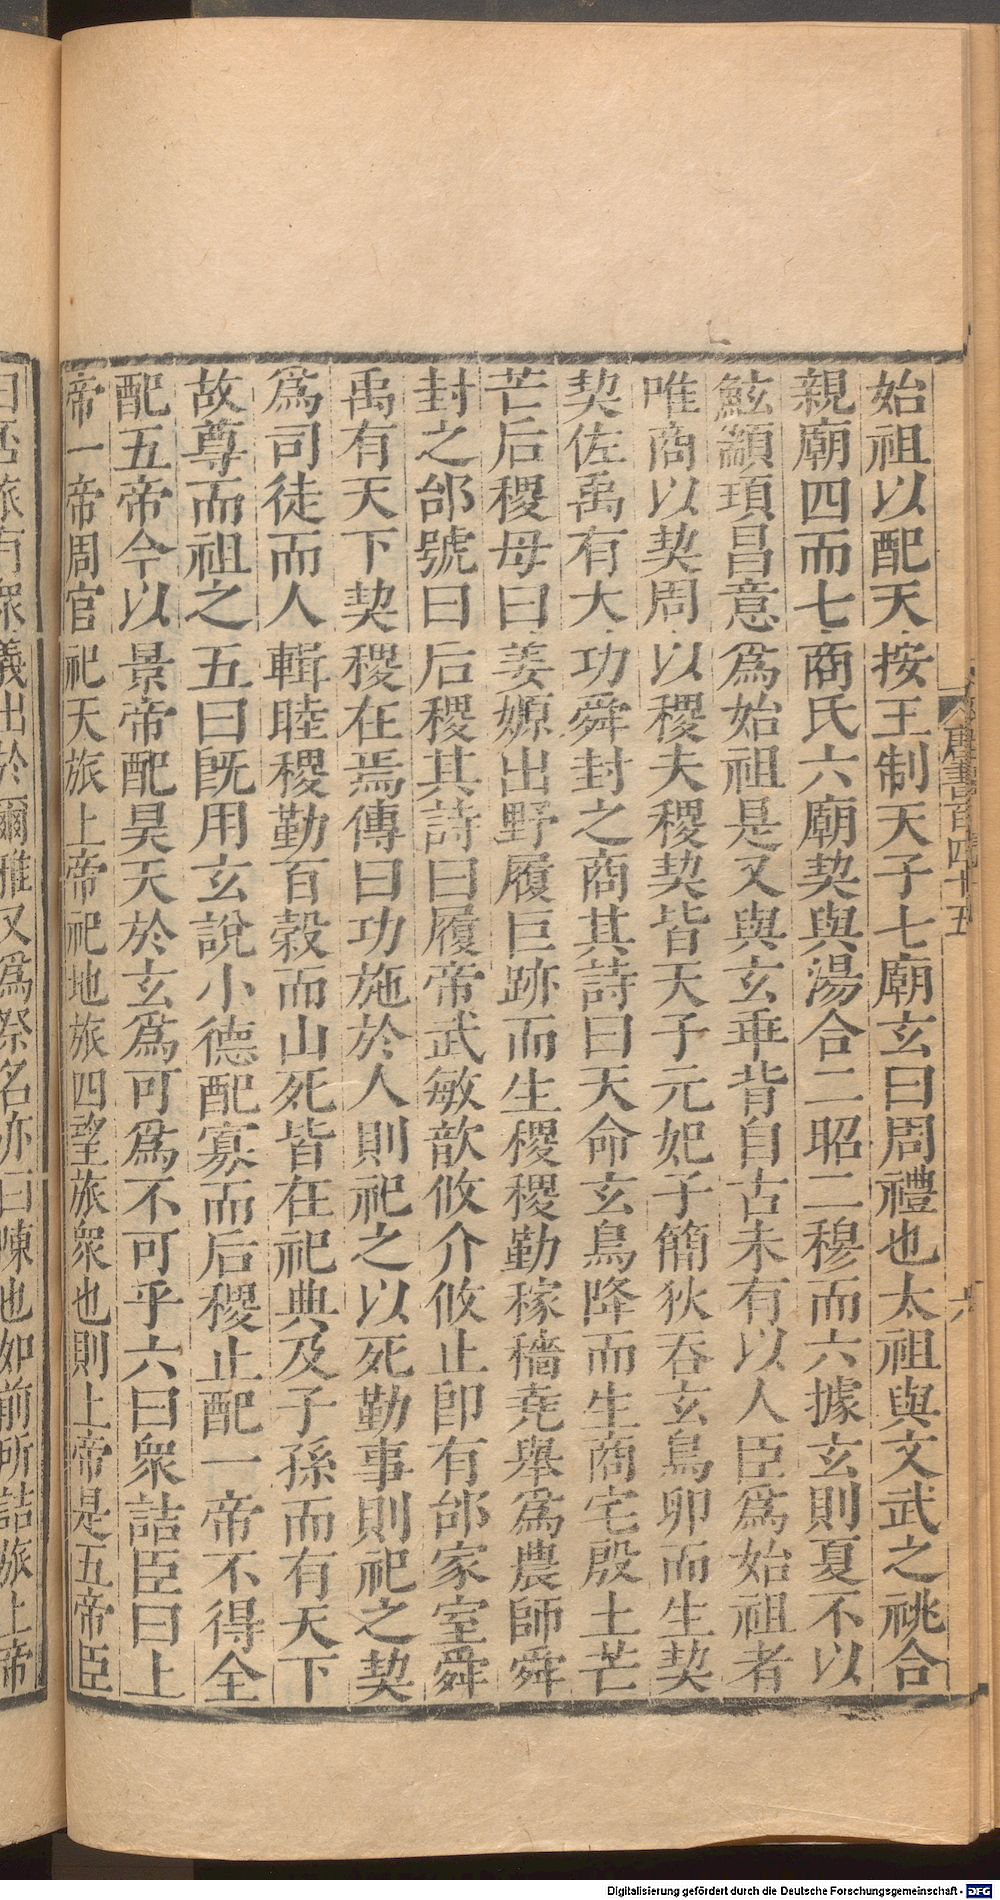 始祖以配天按王制天子七廟玄曰周禮也太祖與文武之祧合
親廟四而七商氏六廟契與湯合二昭二穆而六據玄則夏不以
鮌顓頊昌意爲始祖是又與玄乖背自古未有以人臣爲始祖者
唯商以契周以稷夫稷契皆天子元妃子簡狄吞玄鳥卵而生契
契佐禹有大功舜封之商其詩曰天命玄鳥降而生商宅殷土芒
芒后稷母曰姜嫄出野履巨跡而生稷稷勤稼穡堯舉爲農師舜
封之邰號曰后稷其詩曰履帝武敏歆攸介攸止卽有邰家室舜
禹有天下契稷在焉傳曰功施於人則祀之以死勤事則祀之契
爲司徒而人輯睦稷勤百穀而山死皆在祀典及子孫而有天下
故尊而祖之五曰旣用玄說小德配寡而后稷止配一帝不得全
配五帝今以景帝配昊天於玄爲可爲不可乎六曰衆詰臣曰上
帝一帝周官祀天旅上帝祀地旅四望旅衆也則上帝是五帝臣
曰否旅有衆義出於爾雅又爲祭名亦曰陳也如前所詰旅上帝
唐書百四十五
六
Digitalisierung gefördert durch die Deutsche Forschungsgemeinschaft - DFG